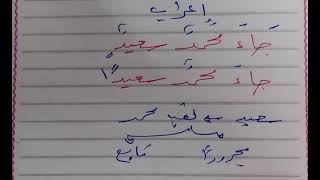 إعراب
جَاءَ محمدٌ سعيدٍ
جَاءَ محمدٌ سعيدًا
سعيد لقب محمد
مجرور تابع